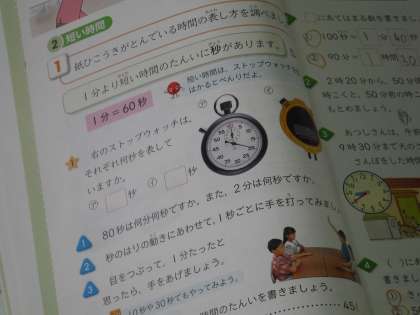 2 短い時間
1 紙ひこうきがとんでいる時間の表し方を調べま
1分より短い時間のたんいに秒があります。
1分＝60秒
短い時間は、ストップウォッチで
はかるとべんりだよ。
1 右のストップウォッチは、
それぞれ何秒を表して
いますか。
㋐ 秒 ㋑ 秒
1 80秒は何分何秒ですか。また、2分は何秒ですか。
2 秒のはりの動きにあわせて、1秒ごとに手を打ってみまし
3 目をつぶって、1分たったと
思ったら、手をあげましょう。
10秒や30秒でもやってみよう。
時間のたんいを書きましょう。
45
にあてはまる数を書きまし
① 100秒＝ 1 分 40 秒
② 90分＝ 1 時間
2 2時20分から、50分
時こくと、50分前の時こ
もとめましょう。
3 あつしさんは、午
9時30分まで犬の
さんぽをした時間
4 ( )に